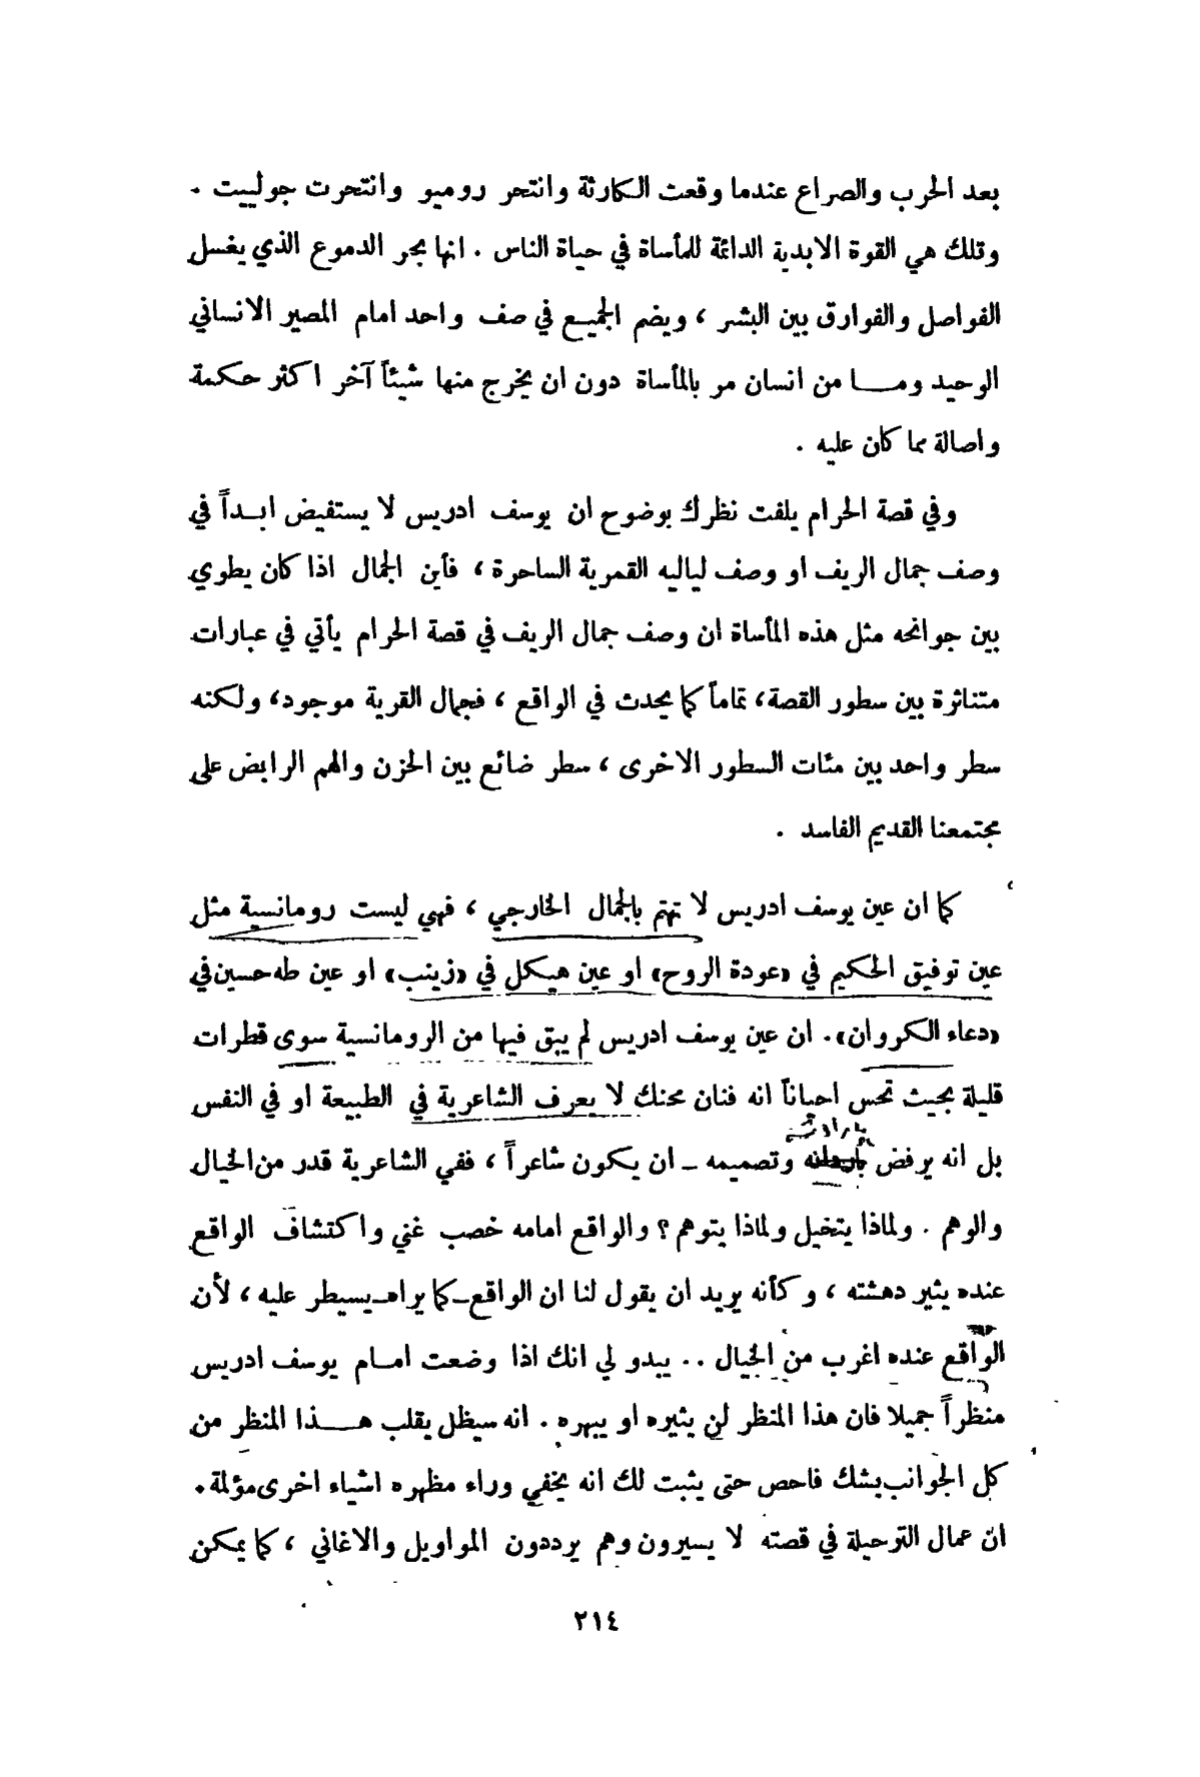 بعد الحرب والصراع عندما وقعت الكارثة وانتحر روميو وانتحرت جولييت .
وتلك هي القوة الابدية الدائمة للمأساة في حياة الناس . انها بحر الدموع الذي يغسل
الفواصل والفوارق بين البشر ، ويضم الجميع في صف واحد امام المصير الانساني
الوحيد ومـــا من انسان مر بالمأساة دون ان يخرج منها شيئاً آخر اكثر حكمة
واصالة مما كان عليه .
وفي قصة الحرام يلفت نظرك بوضوح ان يوسف ادريس لا يستفيض ابــداً في
وصف جمال الريف او وصف لياليه القمرية الساحرة ، فأين الجمال اذا كان يطوي
بين جوانحه مثل هذه المأساة ان وصف جمال الريف في قصة الحرام يأتي في عبارات
متناثرة بين سطور القصة، تماماً كما يحدث في الواقع ، فجمال القرية موجود، ولكنه
سطر واحد بين مئات السطور الاخرى ، سطر ضائع بين الحزن والهم الرابض على
مجتمعنا القديم الفاسد .
كما ان عين يوسف ادريس لا تهتم بالجمال الخارجي ، فهي ليست رومانسية مثل
عين توفيق الحكيم في «عودة الروح» او عين هيكل في «زينب» او عين طه حسين في
«دعاء الكروان». ان عين يوسف ادريس لم يبق فيها من الرومانسية سوى قطرات
قليلة بحيث تحس احياناً انه فنان محنك لا يعرف الشاعرية في الطبيعة او في النفس
بإرادته
بل انه يرفض وتصميمه – ان يكون شاعراً ، ففي الشاعرية قدر من الخيال
والوهم . ولماذا يتخيل ولماذا يتوهم ؟ والواقع امامه خصب غني واكتشاف الواقع
عنده يثير دهشته ، وكأنه يريد ان يقول لنا ان الواقع–كما يراه–يسيطر عليه ، لأن
الواقع عنده اغرب من الخيال .. يبدو لي انك اذا وضعت امــام يوسف ادريس
منظراً جميلا فان هذا المنظر لن يثيره او يبهره . انه سيظل يقلب هـــذا المنظر من
كل الجوانب بشك فاحص حتى يثبت لك انه يخفي وراء مظهره اشياء اخرى مؤلمة .
ان عمال الترحيلة في قصته لا يسيرون وهم يرددون المواويل والاغاني ، كما يمكن
٢١٤